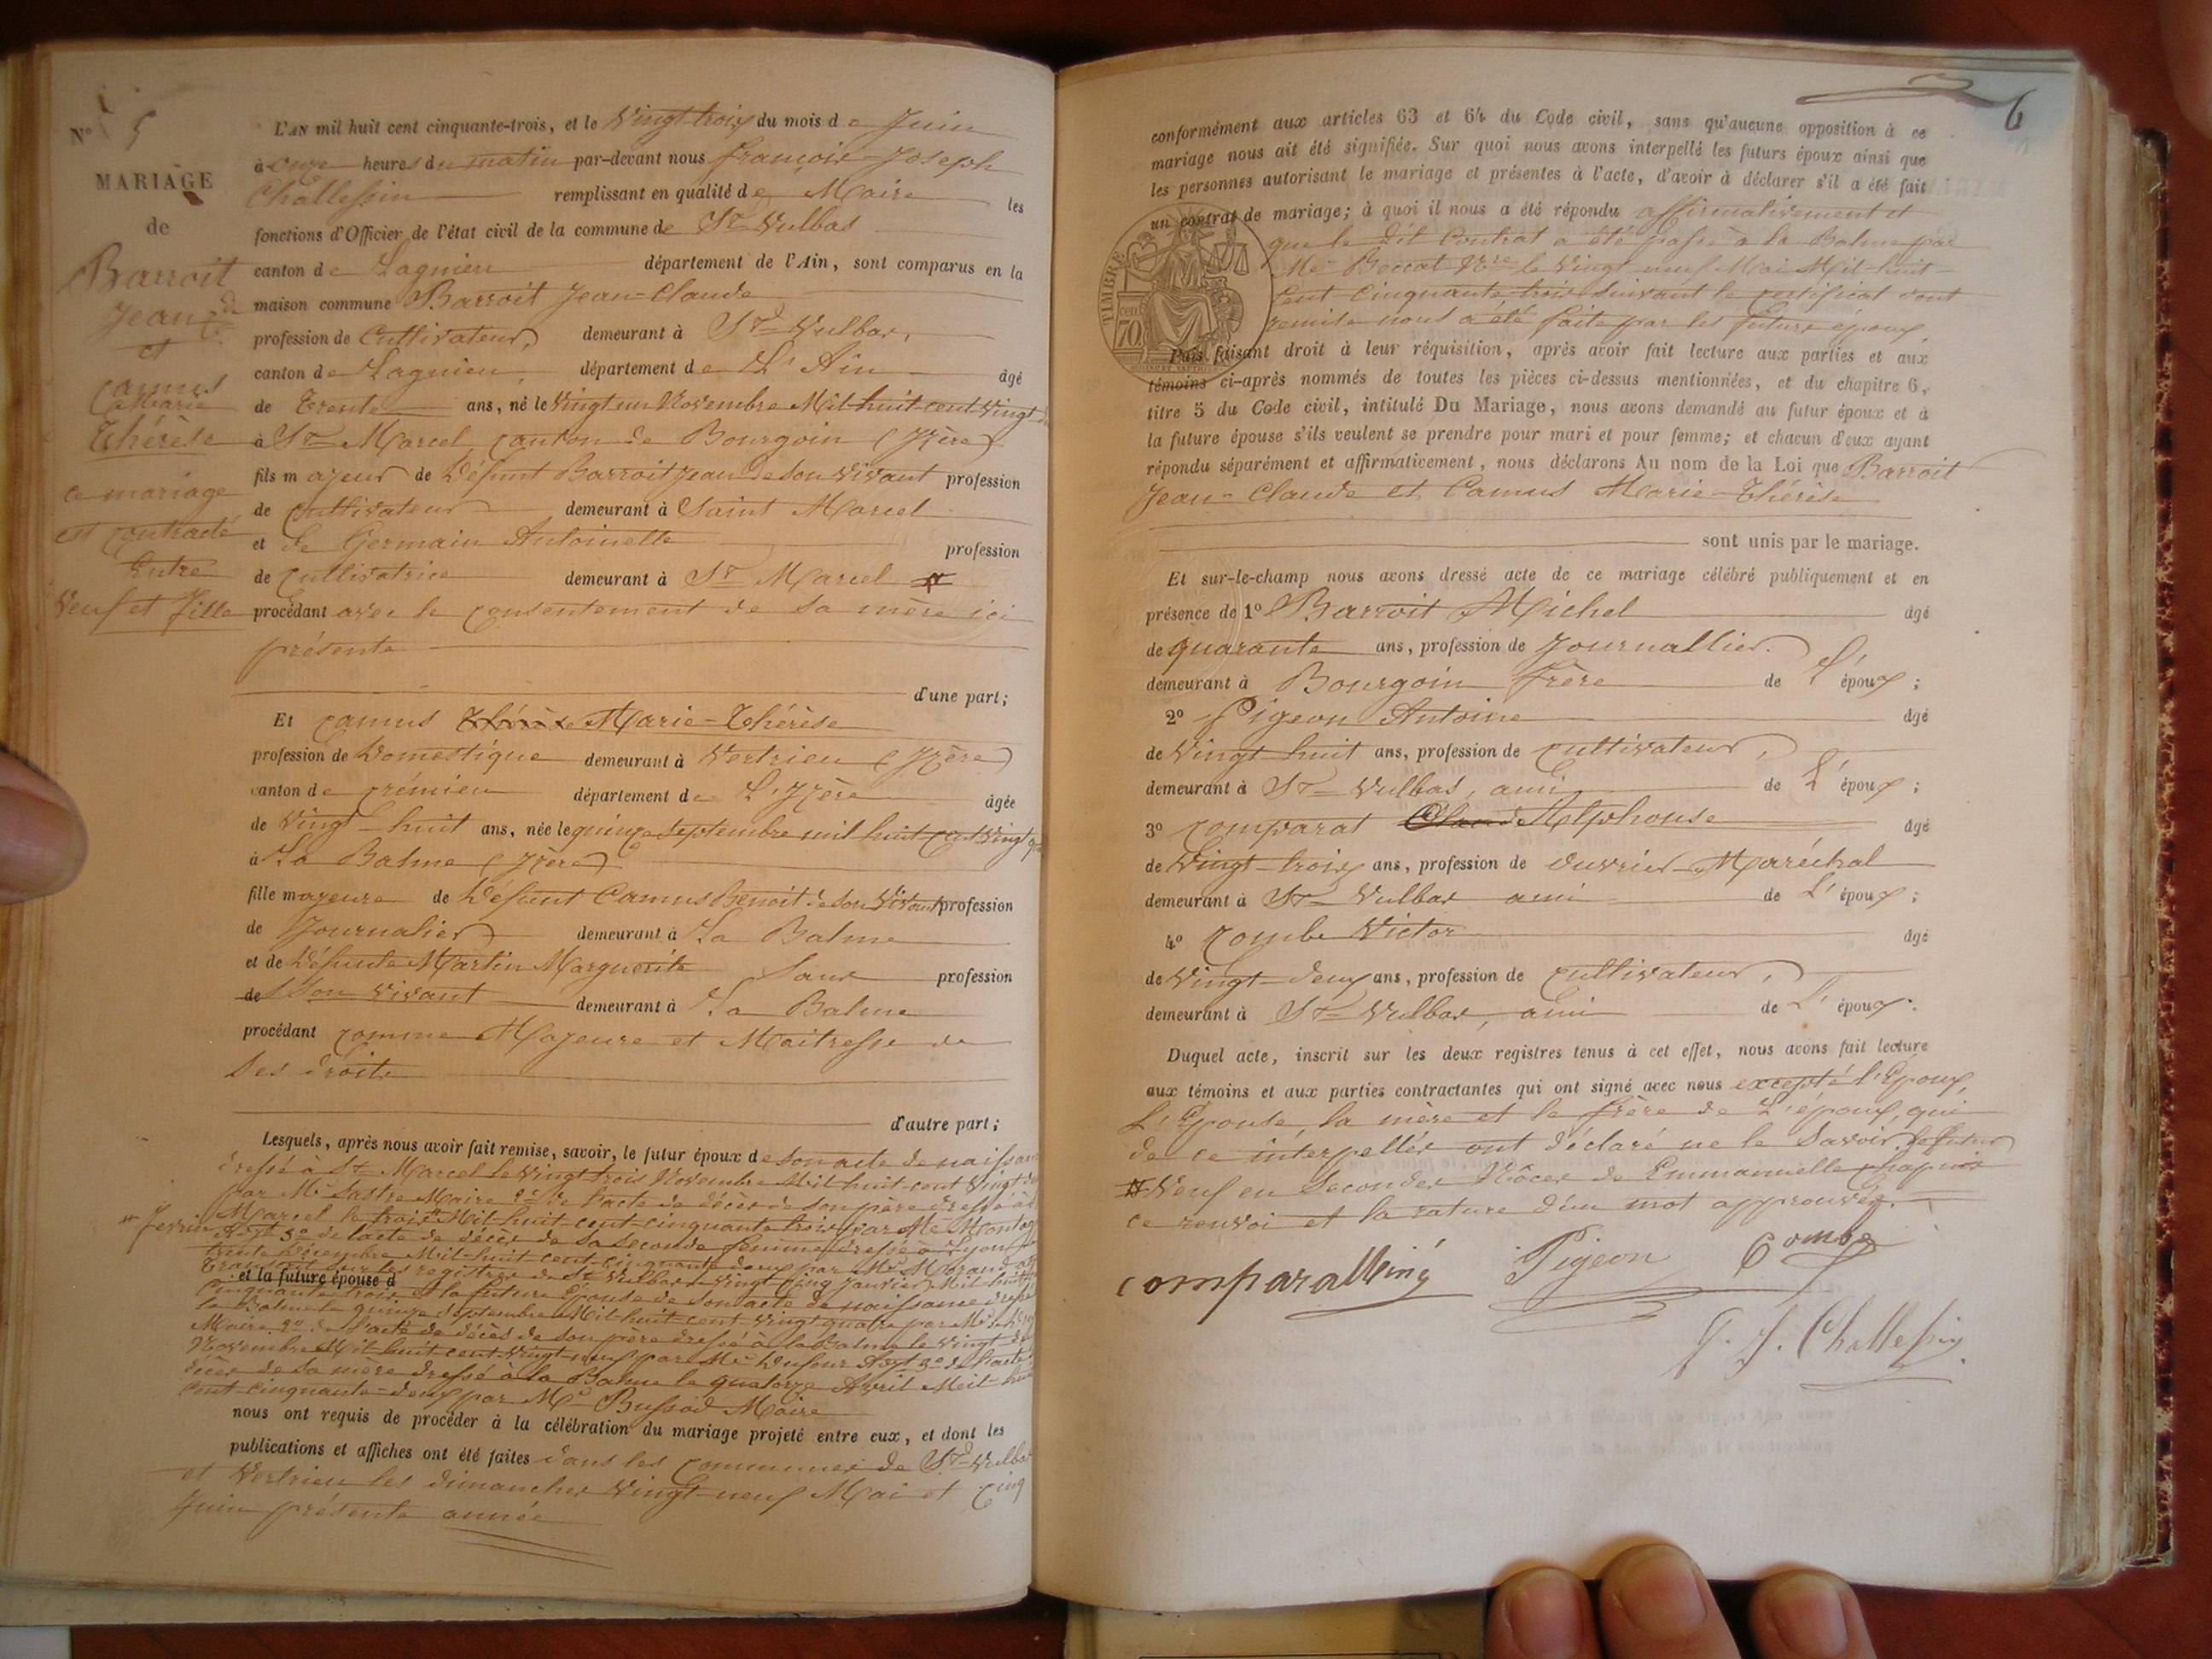 N° 5
MARIAGE
de
Barroit
Jean Cde
et
Camus
Marie
Thérèse
ce mariage
est contracté
Entre
Veuf et fille
L'AN mil huit cent cinquante-trois, et le Vingt-trois du mois de Juin
à onze heures du matin par-devant nous françois-Joseph
Challessin remplissant en qualité de Maire les
fonctions d'Officier de l'état civil de la commune de St Vulbas
canton de Lagnieu département de l'Ain, sont comparus en la
maison commune Barroit Jean-Claude
profession de Cultivateur, demeurant à St Vulbas,
canton de Lagnieu, département de L'Ain âgé
de Trente ans, né le Vingt un Novembre Mil-huit-cent-vingt-d
à St Marcel canton de Bourgoin (Izère)
fils majeur de Défunt Barroit Jean de son vivant profession
de cultivateur demeurant à Saint Marcel
et de Germain Antoinette profession
de cultivatrice demeurant à St Marcel #
procédant avec le consentement de sa mère ici
présente
d'une part;
Et Camus Thérèse Marie-Thérèse
profession de Domestique demeurant à Vertrieu (Izère)
canton de Crémieu département de L'Izère âgée
de Vingt-huit ans, née le quinze septembre mil huit cent vingt q
à La Balme (Izère)
fille majeure de Défunt Camus Benoit de son Vivant profession
de Journalier demeurant à La Balme
et de Défunte Martin Marguerite Sans profession
de Son vivant demeurant à La Balme
procédant comme Majeure et Maitresse de
Ses droits
d'autre part;
Lesquels, après nous avoir fait remise, savoir, le futur époux de son acte de naissan
dressé à St Marcel le Vingt trois Novembre Mil-huit-cent Vingt d
par Mr Sastre Maire 2° de l'acte de décès de son père dressé à St
Marcel le trois Mil-huit-cent-cinquante trois par Mr Montag
fevrier
Adjt 3° de l'acte de décès de sa seconde femme dressé à Lyon le
trente Décembre Mil-huit-cent-cinquante deux par Mr Morand
Transcrit sur les registres de St Vulbas le vingt cinq Janvier Mil huit
et la future épouse d
Cinquante trois et la future Epouse de son acte de naissance dressé
la Balme le quinze Septembre Mil-huit-cent-vingt quatre par Mr
Maire 2° de l'acte de décès de son père dressé à la Balme le Vingt-
Novembre Mil-huit-cent vingt-neuf par Mr Dufour Adjt 3° de l'acte
décès de sa mère dressé à la Balme le quatorze Avril Mil-hu
cent-cinquante-deux par Mr Bussod Maire
nous ont requis de procéder à la célébration du mariage projeté entre eux, et dont les
publications et affiches ont été faites dans les communes de St Vulbas
et Vertrieu les dimanches Vingt-neuf Mai et Cinq
Juin présente année
6
conformément aux articles 63 et 64 du Code civil, sans qu'aucune opposition à ce
mariage nous ait été signifiée. Sur quoi nous avons interpellé les futurs époux ainsi que
les personnes autorisant le mariage et présentes à l'acte, d'avoir à déclarer s'il a été fait
un contrat de mariage; à quoi il nous a été répondu affirmativement et
que le dit Contrat a été passé à la Balme par
Me Boccat Nre le Vingt-neuf Mai Mil-huit-
Cent-Cinquante-trois suivant le certificat dont
remise nous a été faite par les future époux
TIMBRE
70 cen
Puis faisant droit à leur réquisition, après avoir fait lecture aux parties et aux
témoins ci-après nommés de toutes les pièces ci-dessus mentionnées, et du chapitre 6,
titre 5 du Code civil, intitulé Du Mariage, nous avons demandé au futur époux et à
la future épouse s'ils veulent se prendre pour mari et pour femme; et chacun d'eux ayant
répondu séparément et affirmativement, nous déclarons Au nom de la Loi que Barroit
Jean-Claude et Camus Marie-Thérèse
sont unis par le mariage.
Et sur-le-champ nous avons dressé acte de ce mariage célébré publiquement et en
présence de 1° Barroit Michel âgé
de quarante ans, profession de Journallier.
demeurant à Bourgoin frère de L'époux;
2° Pigeon Antoine âgé
de Vingt-huit ans, profession de cultivateur,
demeurant à St Vulbas, ami de L'époux;
3° Comparat Claude Alphonse âgé
de Vingt-trois ans, profession de ouvrier-Maréchal
demeurant à St Vulbas ami de L'époux;
4° Combe Victor âgé
de Vingt-deux ans, profession de cultivateur,
demeurant à St Vulbas, ami de L'époux.
Duquel acte, inscrit sur les deux registres tenus à cet effet, nous avons fait lecture
aux témoins et aux parties contractantes qui ont signé avec nous excepté l'Epoux,
L'Epouse, la mère et le frère de L'époux, qui
de ce interpellés ont déclaré ne le Savoir. le futur
# Veuf en Secondes Nôces de Emmanuelle Chapuis
ce renvoi et la rature d'un mot approuvez.
Comparat Pigeon Combe
F. J. Challessin